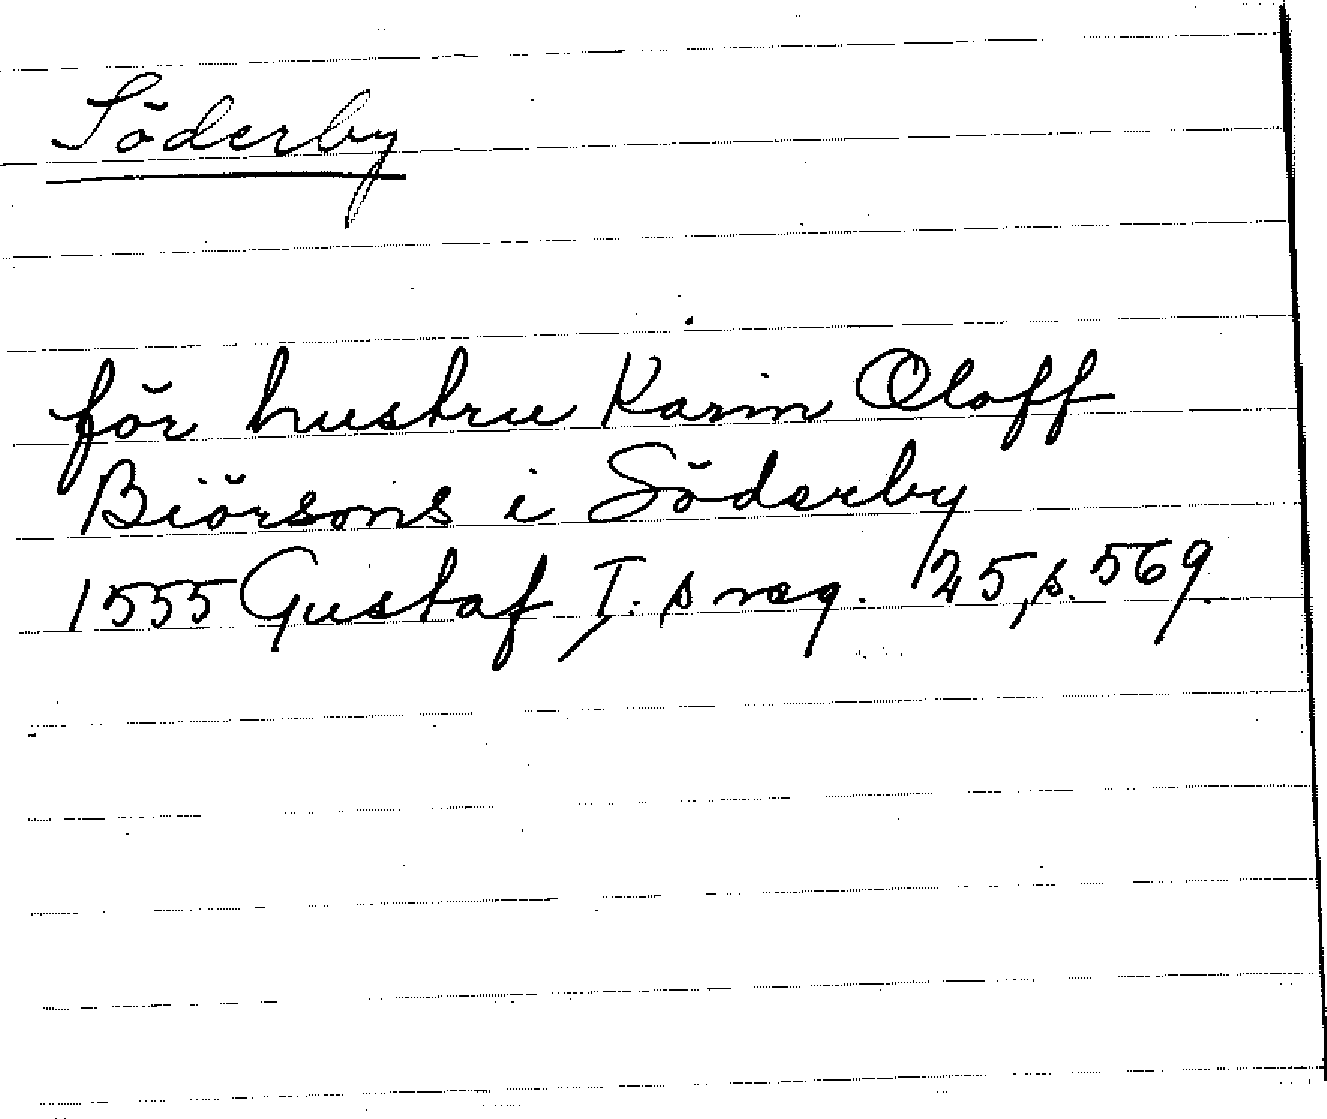 Söderby
för hustru Karin Oloff
Biörsons i Söderby
1555 Gustaf I:s reg. 25, s. 569.